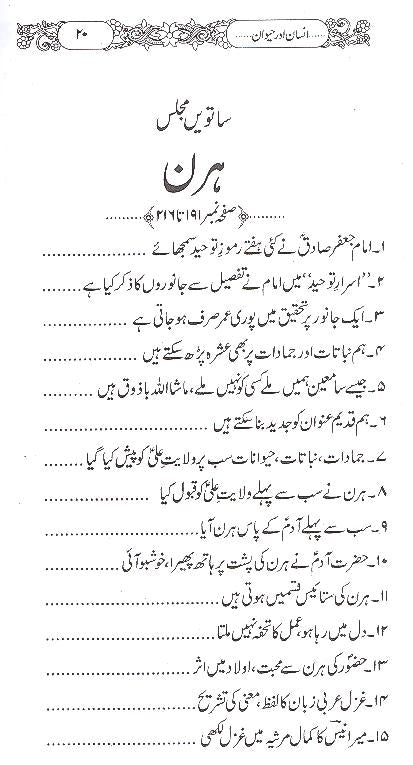 ۲۰ انسان اور حیوان......
ساتویں مجلس
ہرن
..........﴿صفحہ نمبر ۱۹۱ تا ۲۱۶﴾..........
۱۔ امام جعفر صادقؑ نے کئی ہفتے رموزِ توحید سمجھائے ..........
۲۔ ”اسرارِ توحید“ میں امام نے تفصیل سے جانوروں کا ذکر کیا ہے ..........
۳۔ ایک جانور پر تحقیق میں پوری عمر صرف ہو جاتی ہے ..........
۴۔ ہم نباتات اور جمادات پر بھی عشرہ پڑھ سکتے ہیں ..........
۵۔ جیسے سامعین ہمیں ملے کسی کو نہیں ملے، ماشااللہ باذوق ہیں ..........
۶۔ ہم قدیم عنوان کو جدید بنا سکتے ہیں ..........
۷۔ جمادات، نباتات، حیوانات سب پر ولایتِ علیؑ کو پیش کیا گیا ..........
۸۔ ہرن نے سب سے پہلے ولایتِ علیؑ کو قبول کیا ..........
۹۔ سب سے پہلے آدمؑ کے پاس ہرن آیا ..........
۱۰۔ حضرت آدمؑ نے ہرن کی پشت پر ہاتھ پھیرا، خوشبو آئی ..........
۱۱۔ ہرن کی ستائیس قسمیں ہوتی ہیں ..........
۱۲۔ دل میں ریا ہو، عمل کا تحفہ نہیں ملتا ..........
۱۳۔ حضورؐ کی ہرن سے محبت، اولاد میں اثر ..........
۱۴۔ غزل عربی زبان کا لفظ، معنی کی تشریح ..........
۱۵۔ میر انیسؔ کا کمال مرثیہ میں غزل لکھی ..........